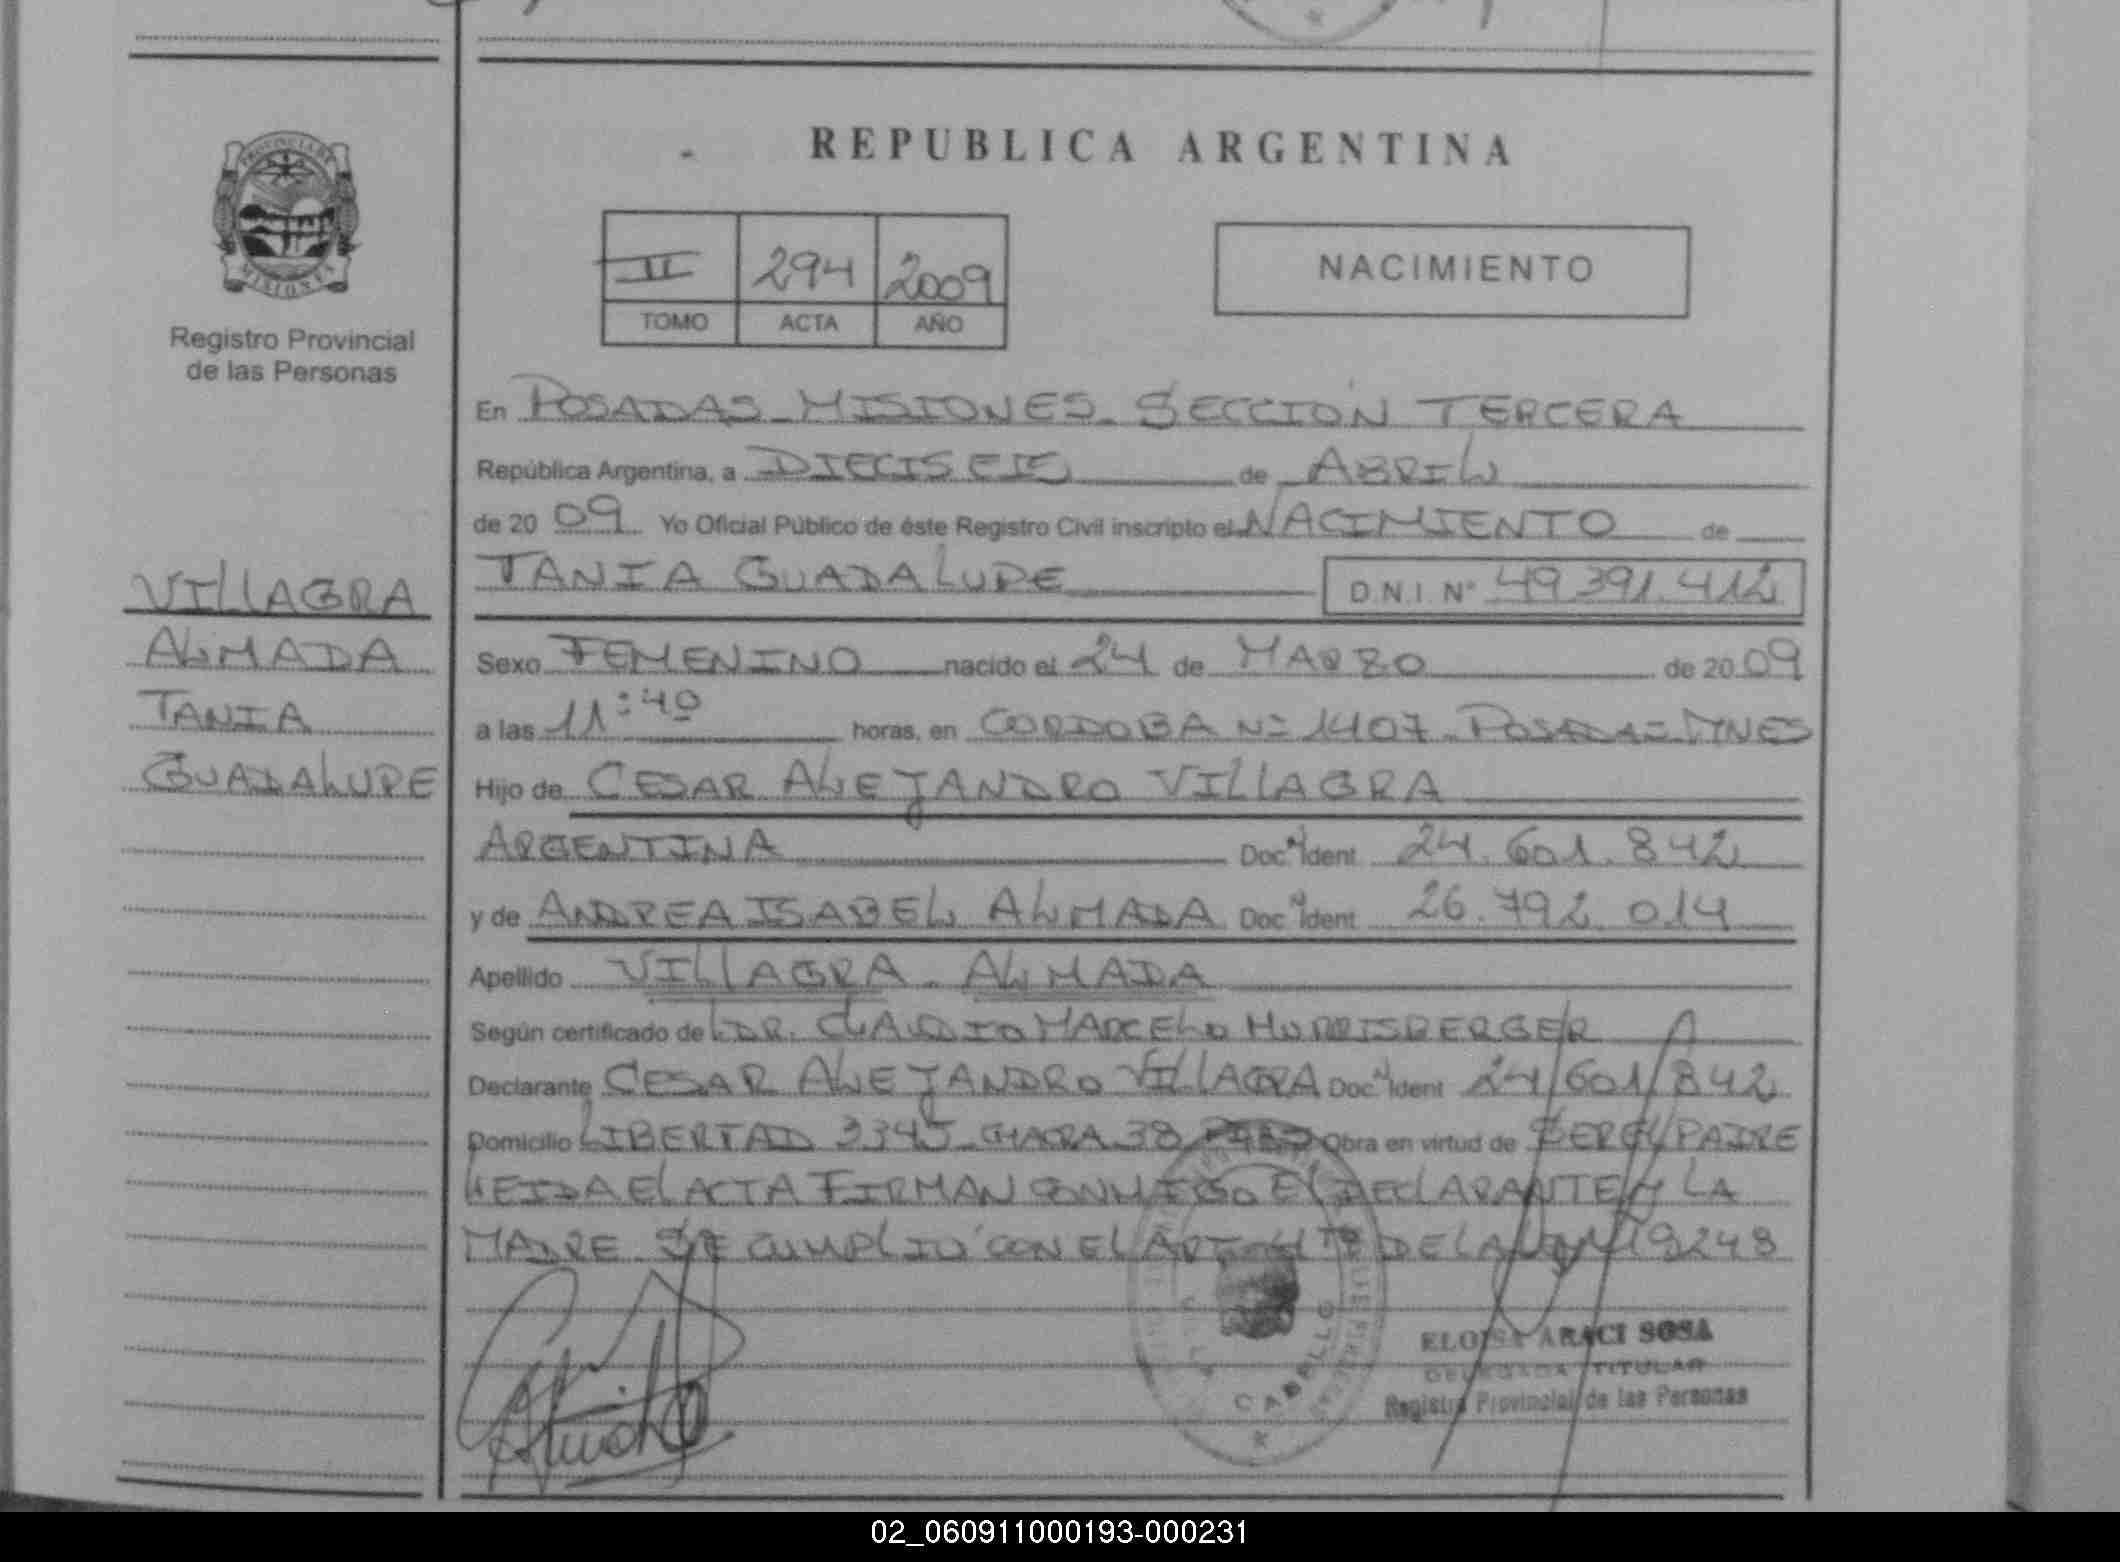 REPUBLICA ARGENTINA
PROVINCIA DE MISIONES
Registro Provincial
de las Personas
II 294 2009
TOMO ACTA AÑO
NACIMIENTO
En POSADAS - MISIONES - SECCION TERCERA
República Argentina, a DIECISEIS de ABRIL
de 20 09 Yo Oficial Público de éste Registro Civil inscripto el NACIMIENTO de
TANIA GUADALUPE D.N.I. Nº 49.391.412
VILLAGRA
ALMADA
TANIA
GUADALUPE
Sexo FEMENINO nacido el 24 de MARZO de 20 09
a las 11:40 horas, en CORDOBA Nº 1407 - POSADAS - MNES
Hijo de CESAR ALEJANDRO VILLAGRA
ARGENTINA Doc. Ident 24.601.842
y de ANDREA ISABEL ALMADA Doc. Ident 26.792.014
Apellido VILLAGRA - ALMADA
Según certificado de DR. CLAUDIO MARCELO
Declarante CESAR ALEJANDRO VILLAGRA Doc. Ident 24.601.842
Domicilio LIBERTAD 3345 - CHACRA 38 Obra en virtud de SER EL PADRE
LEIDA EL ACTA FIRMAN CONMIGO EL DECLARANTE Y LA
MADRE SE CUMPLIO CON EL ART DE LA LEY
CABRILLO
ELOISA ARACI SOSA
DELEGADA TITULAR
Registro Provincial de las Personas
02_060911000193-000231